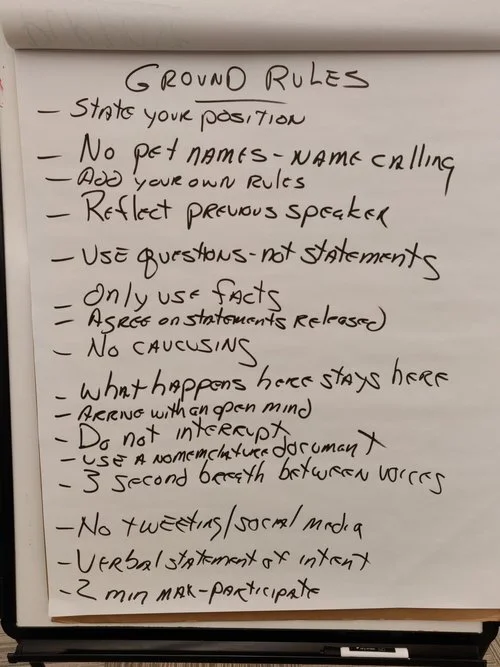 GROUND RULES
- STATE YOUR POSITION
- No pet NAMES - NAME CAlling
- ADD YOUR OWN RULES
- Reflect previous speaker
- USE QUESTIONS - not statements
- Only use facts
- AGREE on statements Released
- No CAUCUSING
- What happens here stays here
- ARRIVE with an open mind
- Do not interrupt
- USE A NOMEMCLATURE document
- 3 second breath between voices
- No tweeting/social media
- Verbal statement of intent
- 2 min MAX - PARTICIPATE